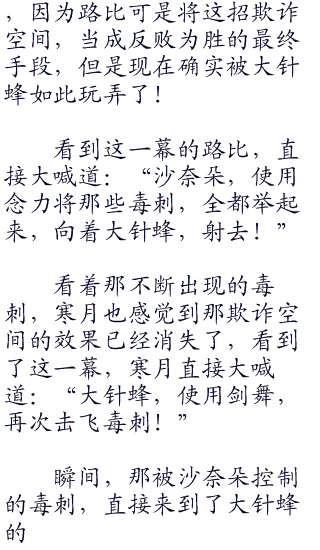 ，因为路比可是将这招欺诈
空间，当成反败为胜的最终
手段，但是现在确实被大针
蜂如此玩弄了！
看到这一幕的路比，直
接大喊道：“沙奈朵，使用
念力将那些毒刺，全都举起
来，向着大针蜂，射去！”
看着那不断出现的毒
刺，寒月也感觉到那欺诈空
间的效果已经消失了，看到
了这一幕，寒月直接大喊
道：“大针蜂，使用剑舞，
再次击飞毒刺！”
瞬间，那被沙奈朵控制
的毒刺，直接来到了大针蜂
的